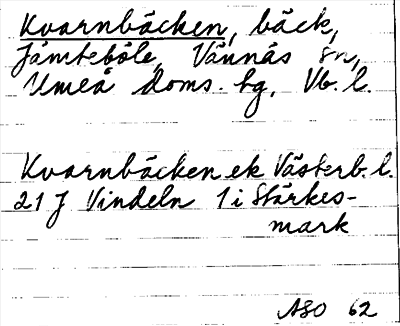 Kvarnbäcken, bäck,
Jämteböle, Vännäs sn,
Umeå doms. hg, Vb. l.
Kvarnbäcken ek Västerb. l.
21 J Vindeln 1 i Stärkes-
mark
ASO 62